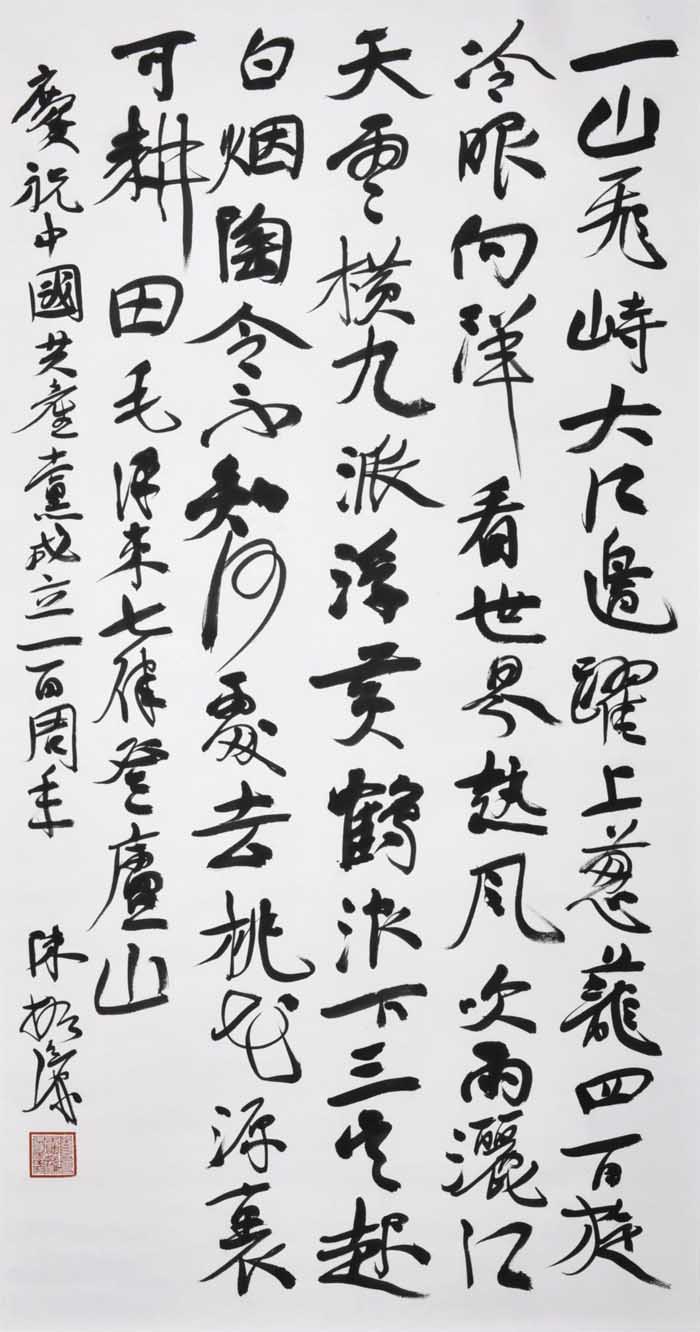 一山飛峙大江邊躍上葱蘢四百旋
冷眼向洋看世界熱風吹雨灑江
天雲橫九派浮黄鶴浪下三吴起
白烟陶令不知何處去桃花源裏
可耕田毛澤東七律登廬山
慶祝中國共產黨成立一百周年 陳振濂